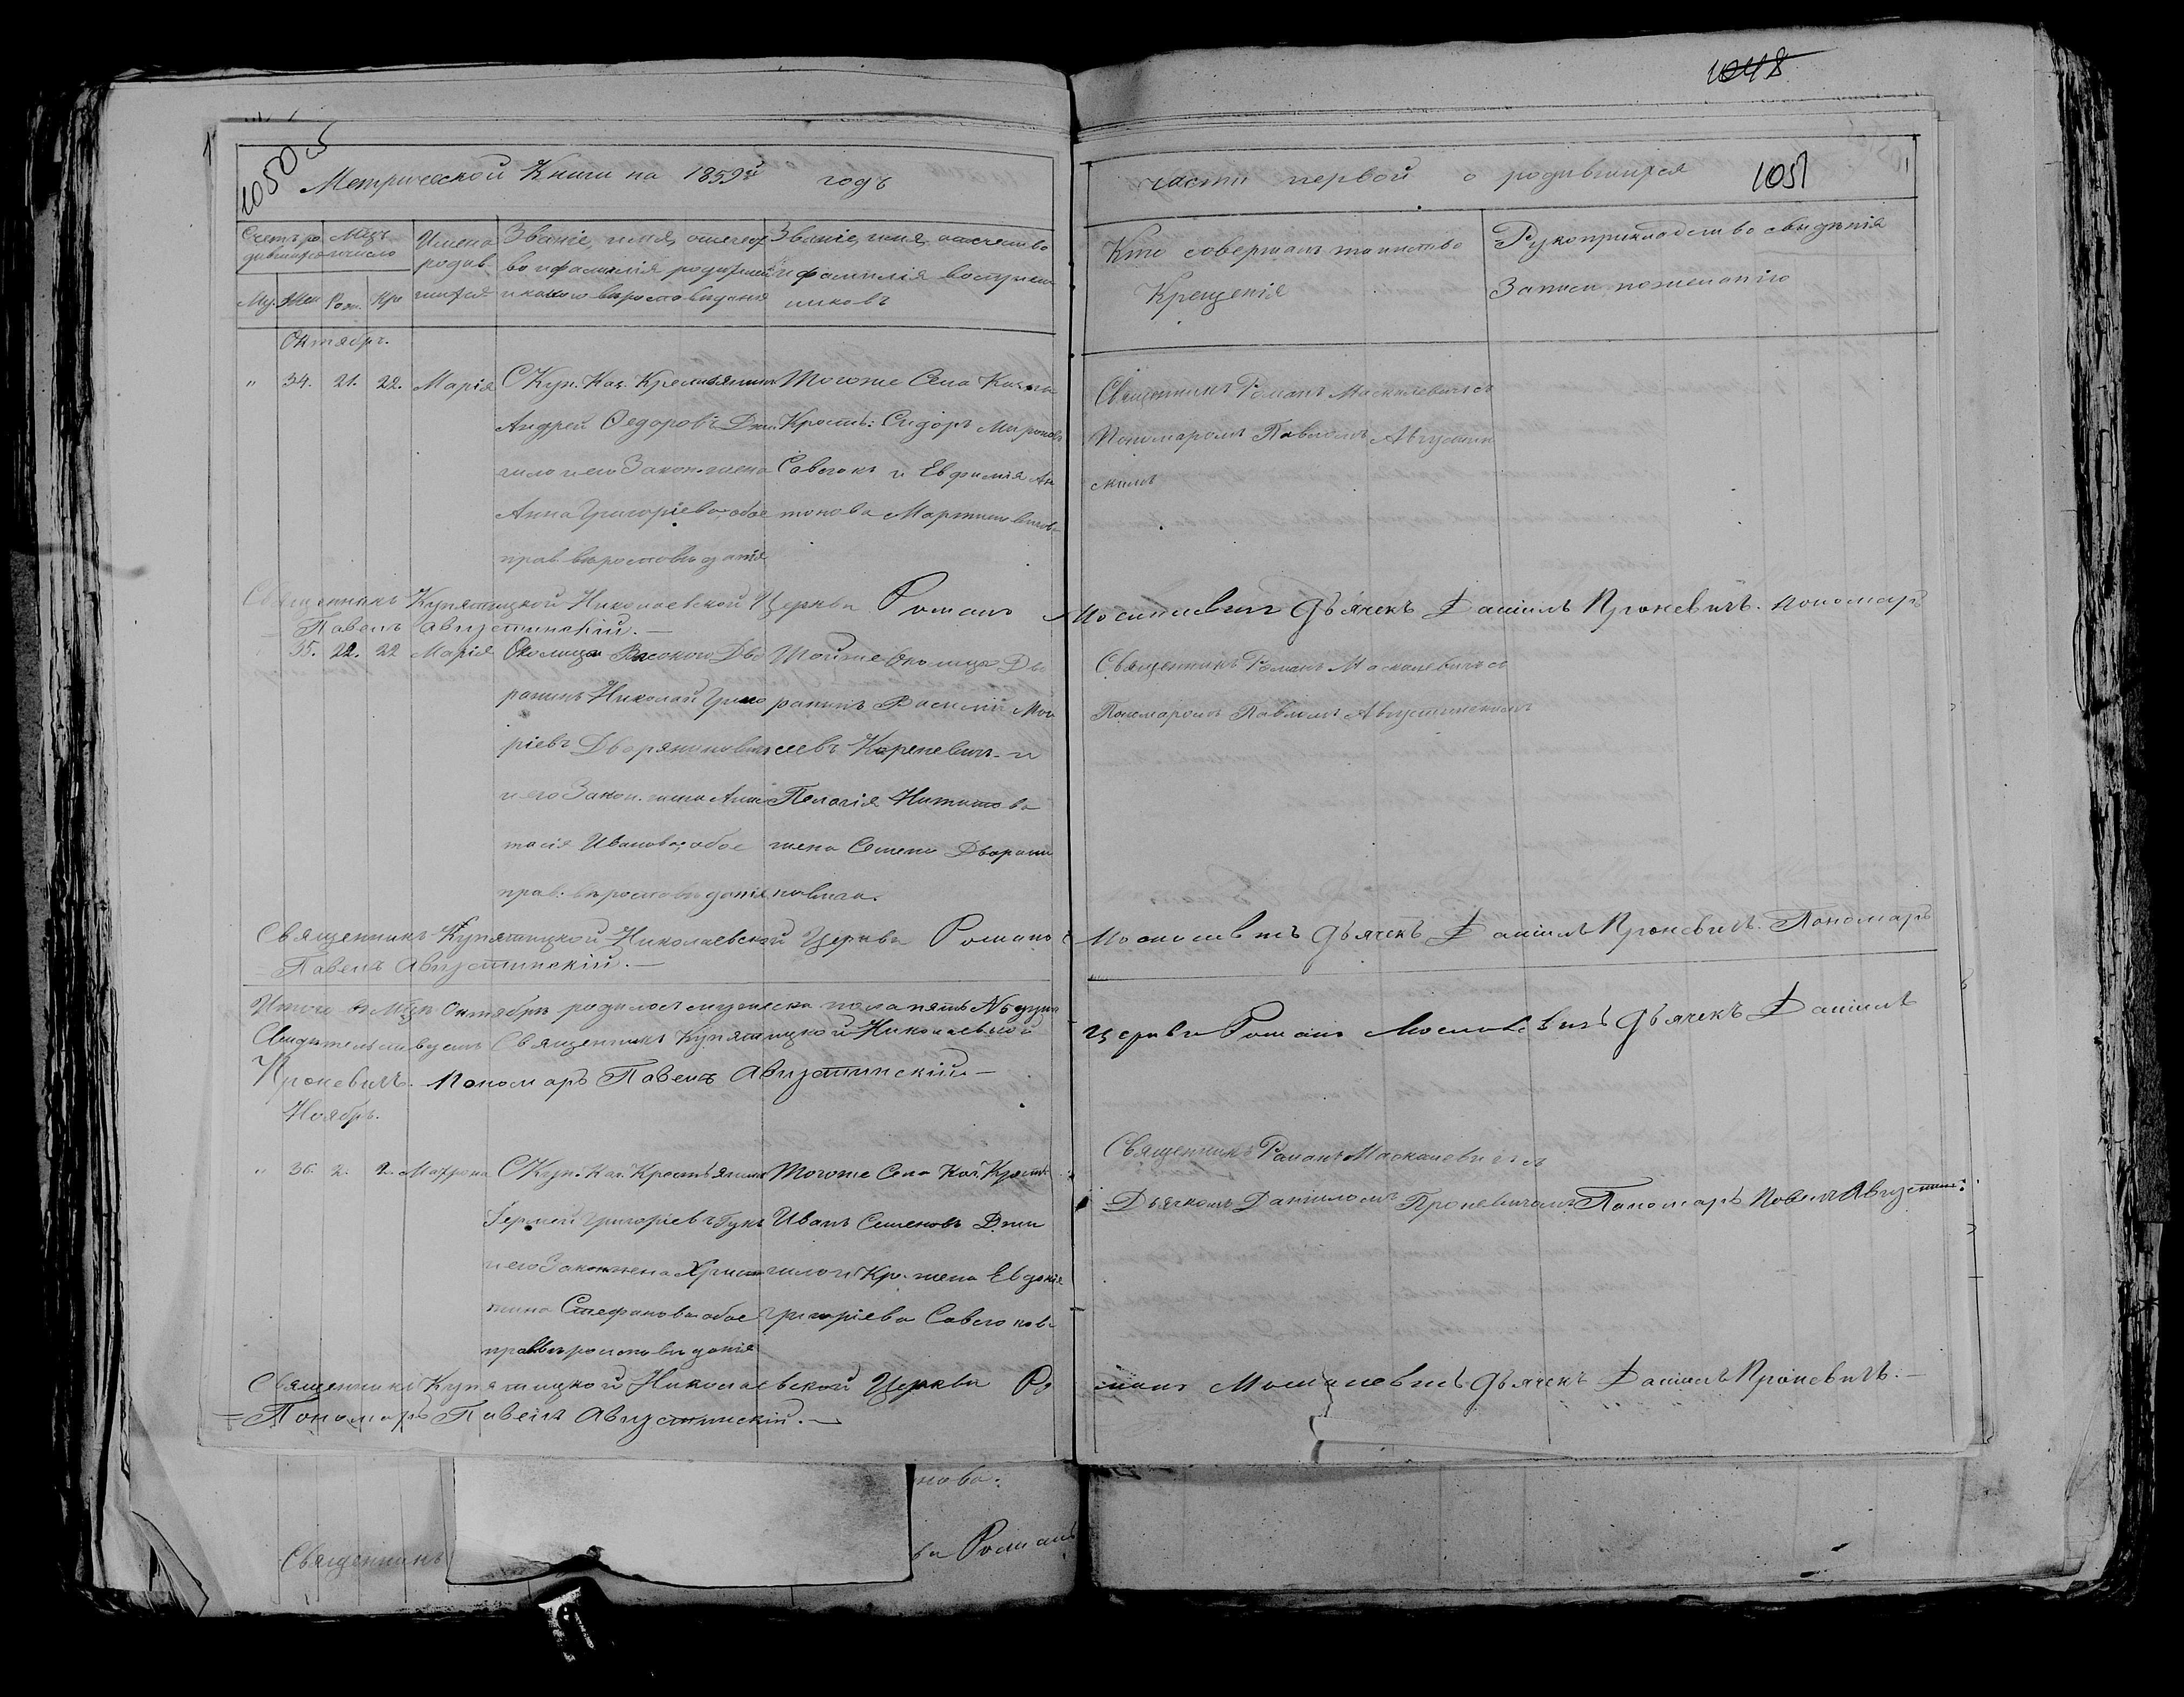 1048
1050 об
Метрической Книги на 1859й годъ
части первой о родившихся 1051
Счетъ родившихся
Мѣц. число
Имена родив шихся
Званіе, имя, отечест во и фамилія родителей и какого вѣроисповѣданія
Званіе, имя, отечество и фамилія воспріем никовъ
Кто совершалъ таинство Крещенія
Рукоприкладство свидѣтелей Записи по желанію
Му. Жен Рож. Кре
Октябрь.
" 34. 21. 22. Марія
С Куп. Каз. Крестьянинъ
Андрей Ѳедоровъ
и его Закон. жена
Анна Григоріева, обое
прав. вѣроисповѣданія
Тогоже Села Казен
Крестъ: Сидоръ Мироновъ
Савонь и Евфимія Ан
тонова
Священникъ Романъ Маскалевичъ съ
Пономаромъ Павломъ Августин
скимъ
Священникъ Купятицкой Николаевской Церкви Романъ Москалевичъ Дьячекъ Даніилъ Проневичъ. Пономарь
Павелъ Августинскій.
35. 22. 22 Марія
Околицы Высокого Дво
ранинъ Николай Григо
ріевъ Дворяниновичъ
и его Закон. жена Анас
тасія Иванова, обое
прав. вѣроисповѣданія
Тойже Околицы Дво
ранинъ Василій Мои
сеевъ Кореневичъ и
Пелагія Никитова
жена Семена Дворани
новича.
Священникъ Романъ Маскалевичъ съ
Пономаромъ Павломъ Августинскимъ
Священникъ Купятицкой Николаевской Церкви Романъ Москалевичъ Дьячекъ Даніилъ Проневичъ. Пономарь
Павелъ Августинскій.
Итого въ Мѣцѣ Октябрѣ родилось мужеска пола пять №5 душъ
Свидѣтельствуемъ Священникъ Купятицкой Николаевской Церкви Романъ Москалевичъ Дьячекъ Даніилъ
Проневичъ. Пономарь Павелъ Августинскій.
Ноябрь.
" 36. 2. 2. Матрона
С Куп. Каз. Крестьянинъ
Григоріевъ Гукъ
и его Закон жена Хрис
тина Стефанова обое
прав вѣроисповѣданія
Тогоже Села Каз. Крест:
Иванъ Семеновъ
и Кр. жена Евдокія
Григоріева
Священникъ Романъ Маскалевичъ съ
Дьячкомъ Даниломъ Проневичомъ Пономарь Павелъ Августин:
Священникъ Купятицкой Николаевской Церкви Романъ Москалевичъ Дьячекъ Даніилъ Проневичъ.
Пономарь Павелъ Августинскій.
нова.
Священникъ
ви Романъ